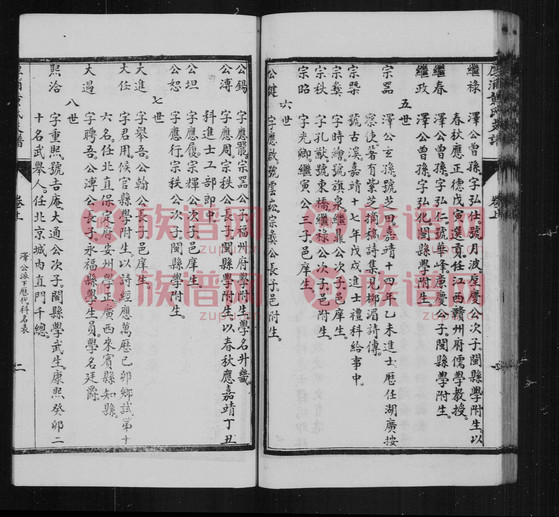 繼祿　澤公曾孫字弘仕號月波居慶公次子閩縣學附生以
春秋應正德戊寅選貢任江西贛州府儒學教授
繼春　澤公曾孫字弘仁號華峰康慶公子閩縣學附生
繼政　澤公曾孫字弘化閩縣學附生
五世
宗器　澤公玄孫號芝田嘉靖十四年乙未進士歷任湖廣按
察使著有葉芝摘稿詩集見柳湄詩傳
宗槩　號古溪嘉靖十七年戊戌進士禮科給事中
宗彝　字時繪號旗泉繼公次子邑庠生
宗秩　字猷號東橋繼祿公子邑附生
宗昭　字光卿繼寅公三子邑庠生
六世
公健　字應啟號雲從宗彝公長子邑附生
公錫　字應龍宗器公子福州府學附生學名升
公溥　字應周宗秩公長子閩縣學附生以春秋應嘉靖丁丑
科進士工部即中
公坦　字應履宗槩公次子閩縣學附生
公恕　字應行宗秩公次子閩縣學附生
七世
大進　字舉吾公翰公長子邑庠生
大任　字君用候官縣學附生以詩經應萬歷己卯鄉試第十
六名任北直保定府安州學正廣西來賓縣知縣
大過　字聘吾公溥公長子永福縣學生員學名廷爵
八世
熙洽　字重熙號吉庵大通公次子閩縣學武生康熙癸卯二
十名武舉人任北京城內直門千總
澤公派下歷代科名表
二
族谱网
zupu.cn